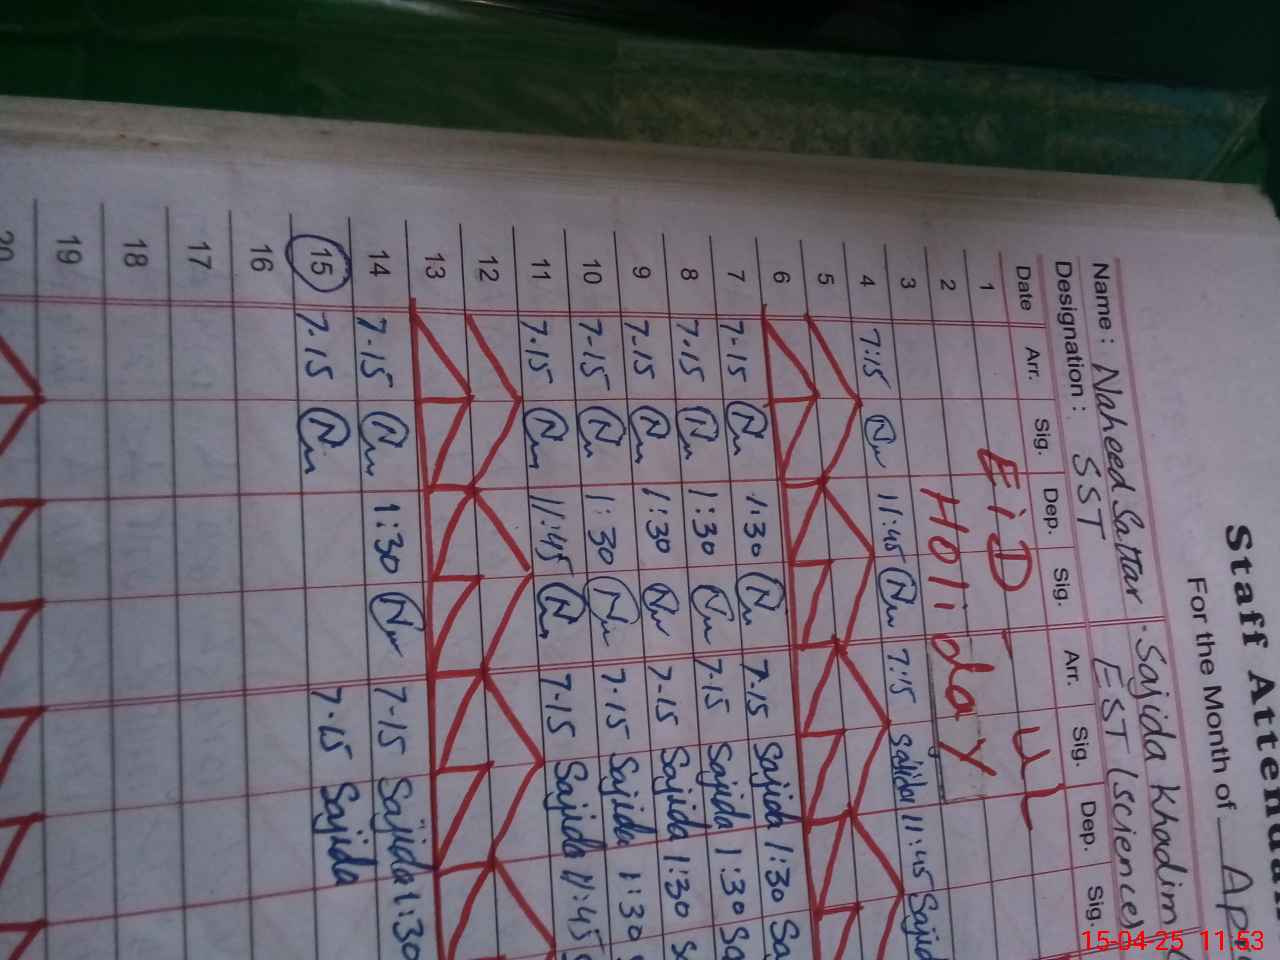 Staff Attendan
For the Month of Ap
Name : Naheed Sattar Sajida Khadim
Designation : SST EST (science)
Date Arr. Sig. Dep. Sig. Arr. Sig. Dep. Sig.
1 EiD ul
2 Holiday
3
4 7:15 Nu 11:45 Nu 7:15 Sajida 11:45 Sajid
5
6
7 7-15 Nu 1:30 Nu 7-15 Sajida 1:30 Sa
8 7.15 Nu 1:30 Nu 7-15 Sajida 1:30 Sa
9 7-15 Nu 1:30 Nu 7-15 Sajida 1:30 S
10 7-15 Nu 1:30 Nu 7-15 Sajida 1:30
11 7.15 Nu 11:45 Nu 7-15 Sajida 11:45
12
13
14 7-15 Nu 1:30 Nu 7-15 Sajida 1:30
15 7-15 Nu 7-15 Sajida
16
17
18
19
20
15-04-25 11:53